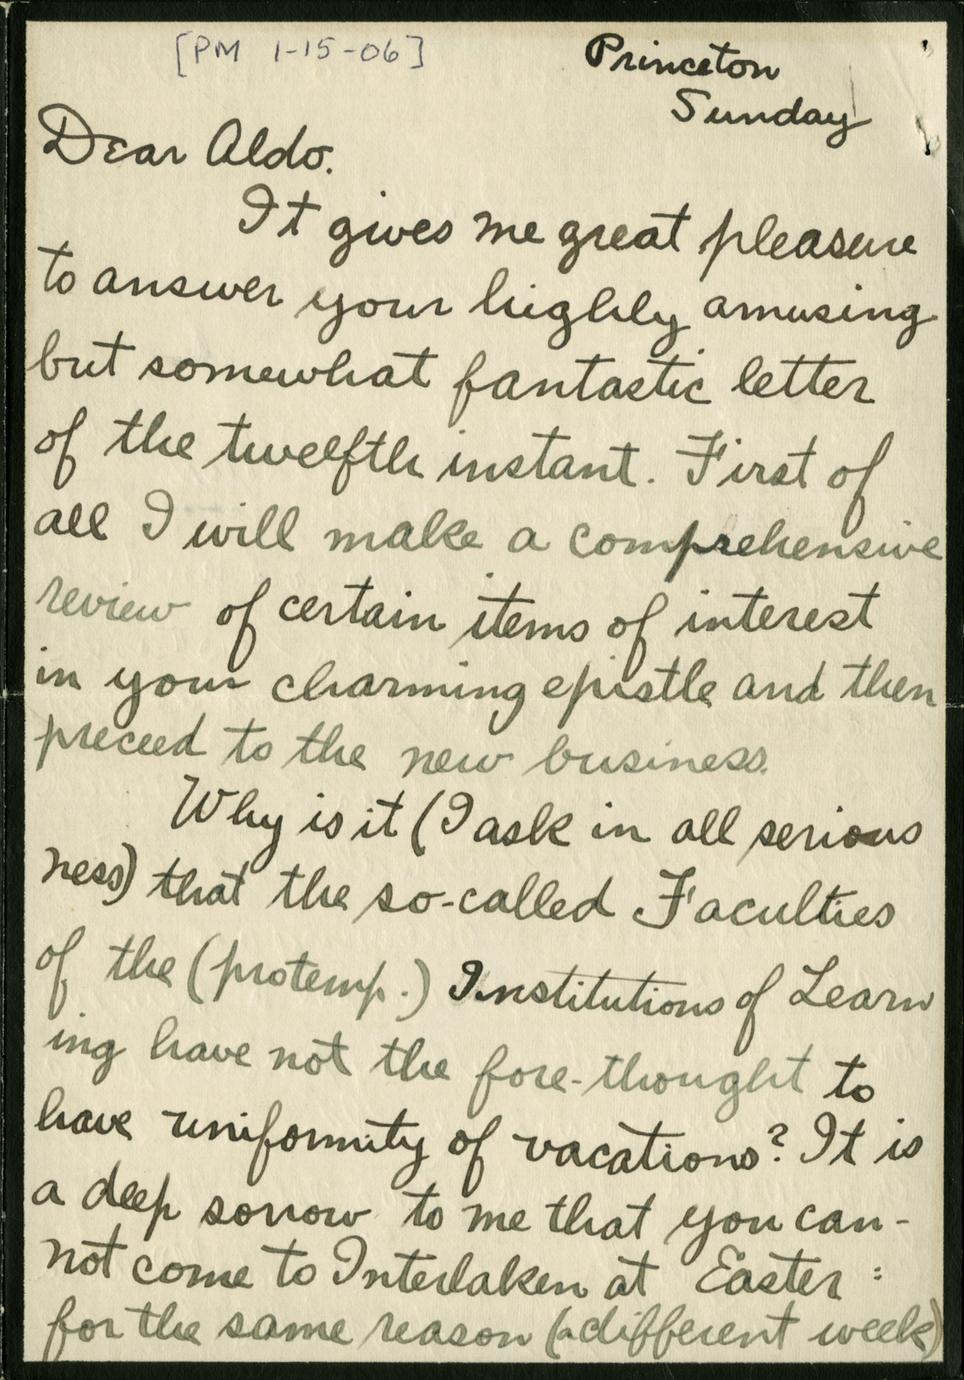 [PM 1-15-06]
Princeton
Sunday
Dear Aldo.
It gives me great pleasure
to answer your highly amusing
but somewhat fantastic letter
of the twelfth instant. First of
all I will make a comprehensive
review of certain items of interest
in your charming epistle and then
preceed to the new business.
Why is it (I ask in all serious
ness) that the so-called Faculties
of the (protemp.) Institutions of Learn
ing have not the fore-thought to
have uniformity of vacations? It is
a deep sorrow to me that you can-
not come to Interlaken at Easter :
for the same reason (a different week)